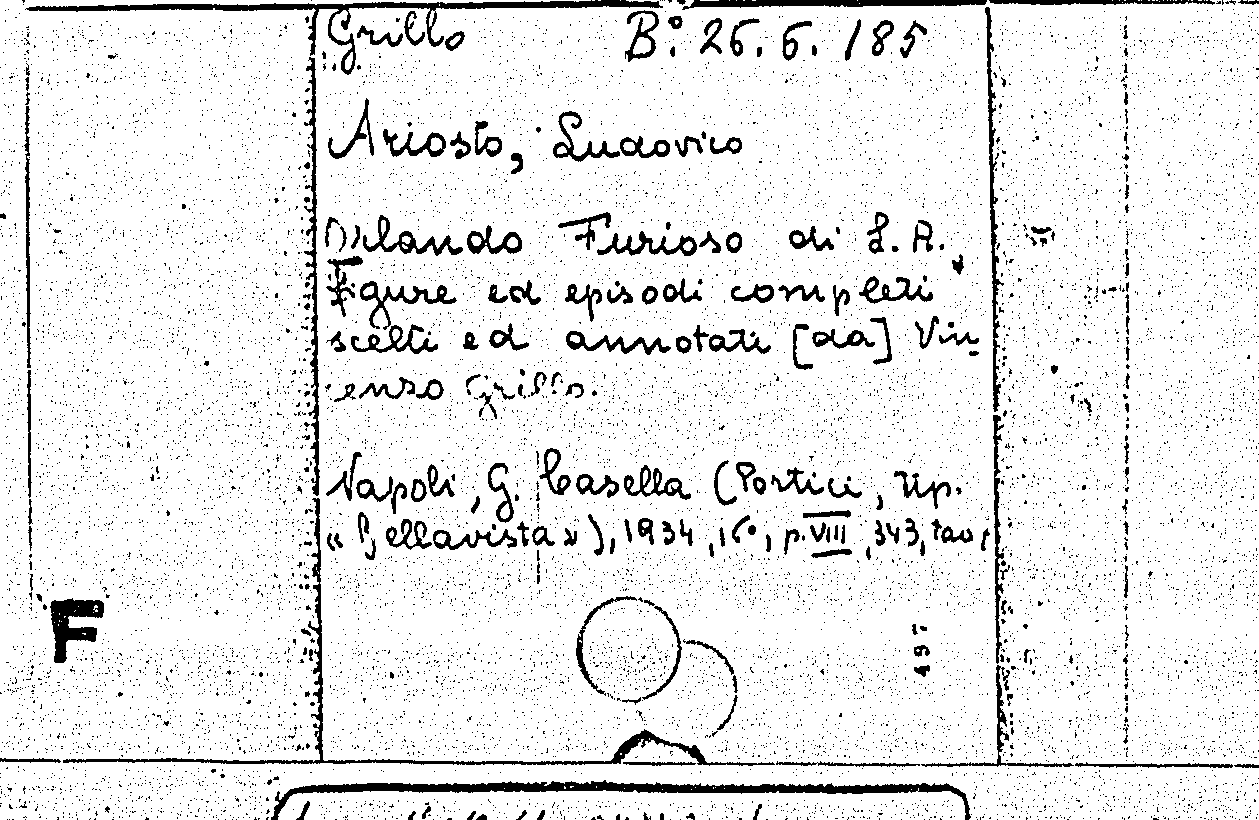 Grillo B°. 26.6.185
Ariosto, Ludovico
Orlando Furioso di L. A.
Figure ed episodi completi
scelti ed annotati [da] Vin-
cenzo Grillo.
Napoli, G. Casella (Portici, Tip.
« Bellavista »), 1934, 16°, p. VIII, 343, tav.
497
F